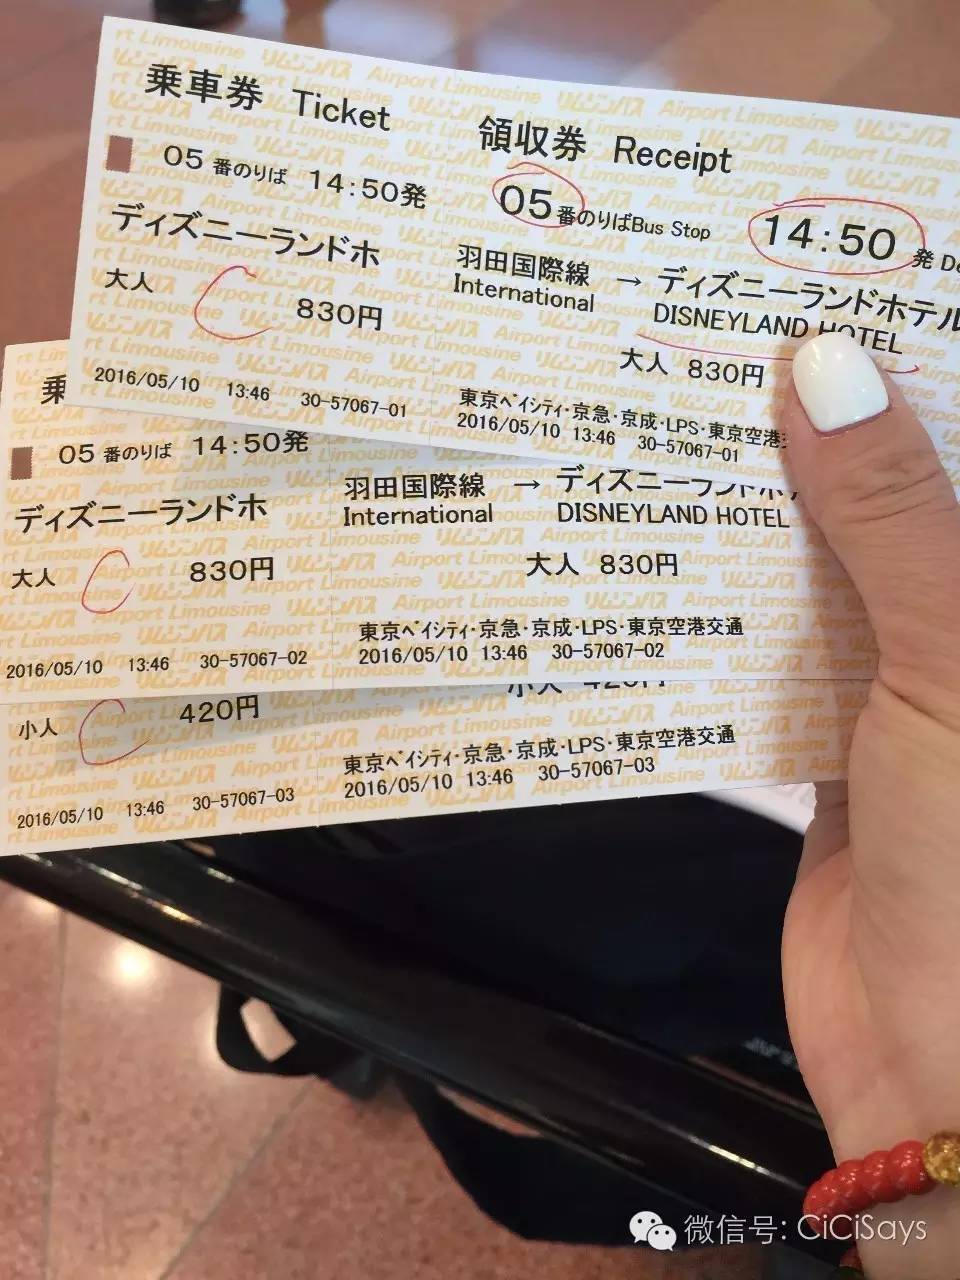 乗車券 Ticket
領収券 Receipt
05 番のりば 14:50発
05番のりばBus Stop 14:50 発
ディズニーランドホ
羽田国際線 → ディズニーランドホテル
International DISNEYLAND HOTEL
大人 830円
大人 830円
2016/05/10 13:46 30-57067-01
東京ベイシティ・京急・京成・LPS・東京空港
2016/05/10 13:46 30-57067-01
乗
05 番のりば 14:50発
ディズニーランドホ
羽田国際線 → ディズニーランドホテ
International DISNEYLAND HOTEL
大人 830円
大人 830円
2016/05/10 13:46 30-57067-02
東京ベイシティ・京急・京成・LPS・東京空港交通
2016/05/10 13:46 30-57067-02
小人 420円
小人 420円
2016/05/10 13:46 30-57067-03
東京ベイシティ・京急・京成・LPS・東京空港交通
2016/05/10 13:46 30-57067-03
Airport Limousine リムジンバス
微信号: CiCiSays